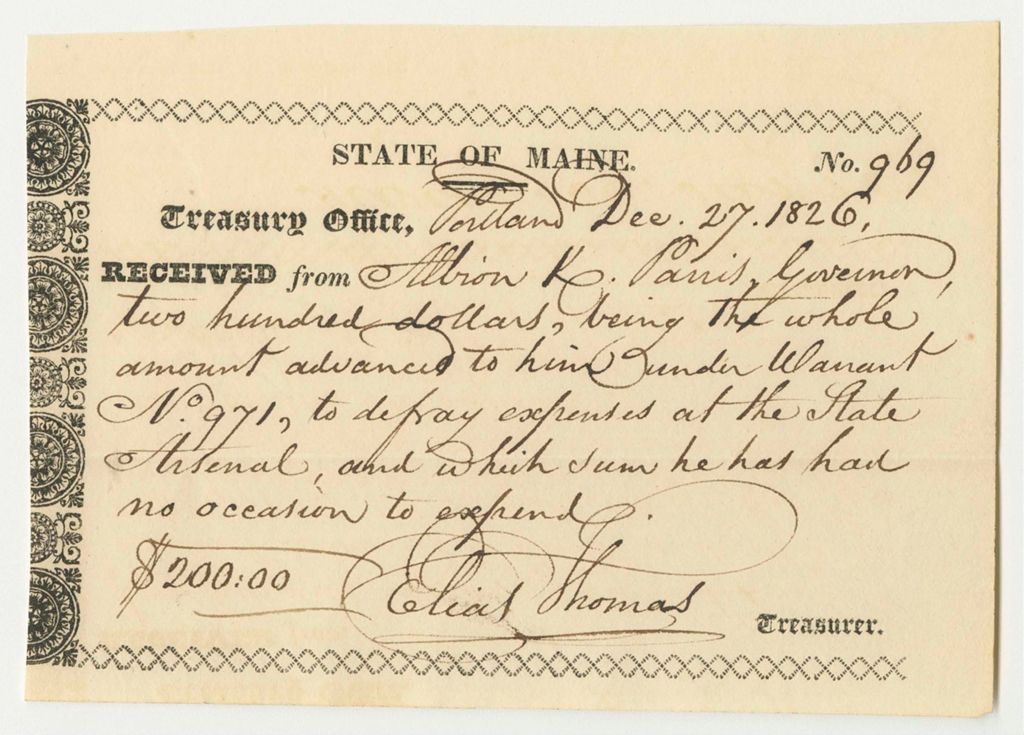 STATE OF MAINE.
No. 969
Treasury Office, Portland Dec. 27. 1826,
RECEIVED from Albion K. Parris, Governor,
two hundred dollars, being the whole
amount advanced to him under Warrant
No. 971, to defray expenses at the State
Arsenal, and which sum he has had
no occasion to expend.
$200:00
Elias Thomas
Treasurer.